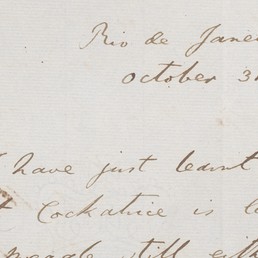 Rio de Jane
October 3
have just learnt
Cockatrice is
still